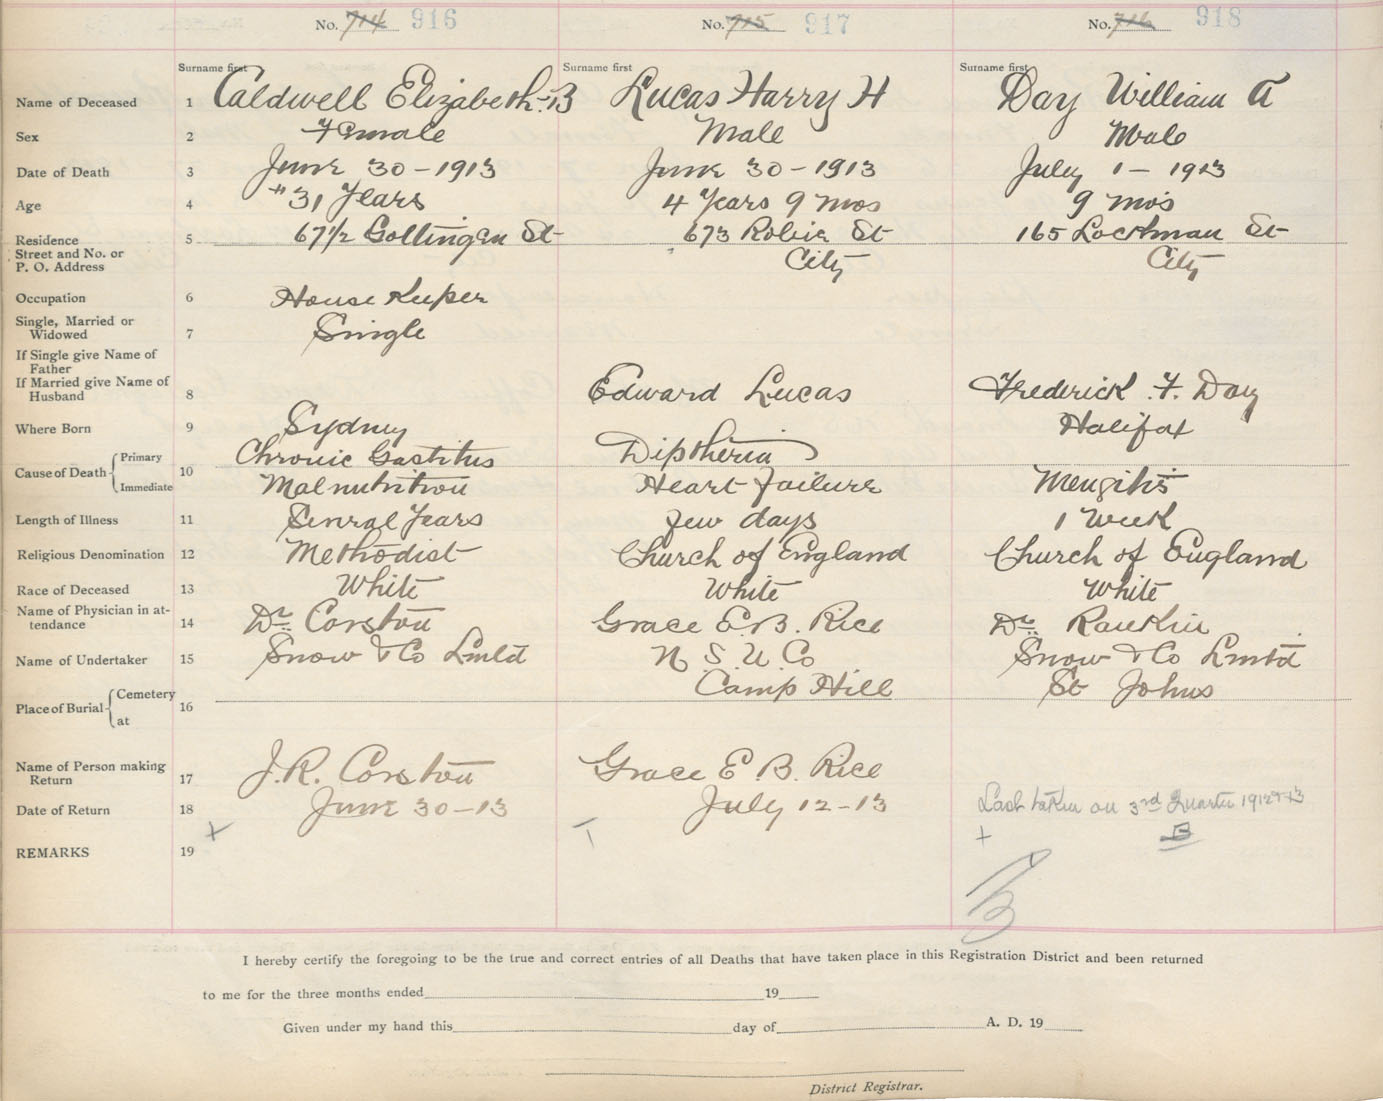 No. 714 916 No. 715 917 No. 716 918
Surname first Surname first Surname first
Name of Deceased 1 Caldwell Elizabeth B Lucas Harry H Day William A
Sex 2 Female Male Male
Date of Death 3 June 30-1913 June 30-1913 July 1-1913
Age 4 "31 Years 4 Years 9 mos 9 mos
Residence 5 67½ Gottingen St 673 Robie St 165 Lockman St
Street and No. or City City
P. O. Address
Occupation 6 House Keeper
Single, Married or
Widowed 7 Single
If Single give Name of
Father
If Married give Name of
Husband 8 Edward Lucas Frederick F. Day
Where Born 9 Sydney Halifax
Cause of Death Primary 10 Chronic Gastitus Diptheria
Immediate Malnutrition Heart Failure Mengitis
Length of Illness 11 Several Years few days 1 Week
Religious Denomination 12 Methodist Church of England Church of England
Race of Deceased 13 White White White
Name of Physician in at-
tendance 14 Dr. Corston Grace E. B. Rice Dr. Rankin
Name of Undertaker 15 Snow & Co Lmtd N S U Co Snow & Co Lmtd
Place of Burial Cemetery 16 Camp Hill St Johns
at
Name of Person making
Return 17 J. R. Corston Grace E. B. Rice
Date of Return 18 June 30-13 July 12-13 Last taken on 3rd Quarter 1912+13
+ + B
REMARKS 19
B
I hereby certify the foregoing to be the true and correct entries of all Deaths that have taken place in this Registration District and been returned
to me for the three months ended 19
Given under my hand this day of A. D. 19
District Registrar.